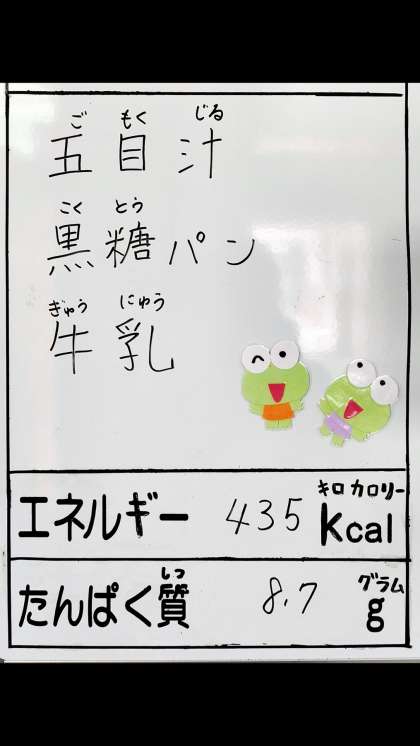 ご もく じる
五目汁
こく とう
黒糖パン
ぎゅう にゅう
牛乳
キロ カロリー
エネルギー 435 Kcal
しつ グラム
たんぱく質 8.7 g